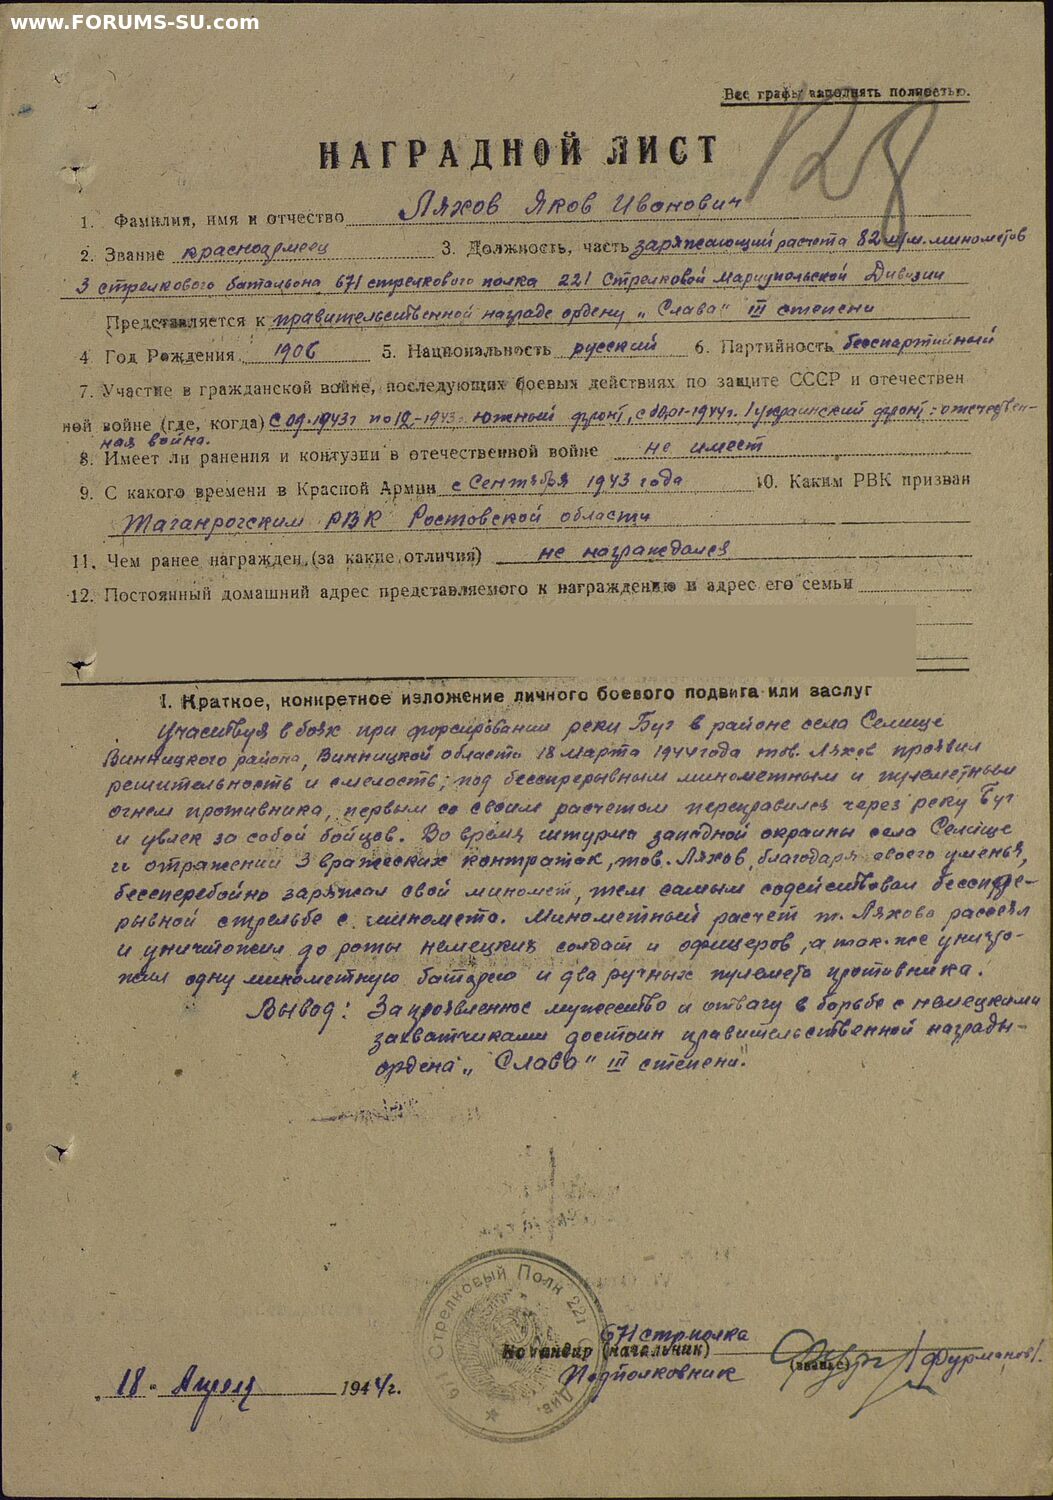 www.FORUMS-SU.com
Все графы заполнять полностью.
128
НАГРАДНОЙ ЛИСТ
1. Фамилия, имя и отчество Ляхов Яков Иванович
2. Звание красноармеец 3. Должность, часть заряжающий расчета 82 м/м. минометов
3 стрелкового батальона 671 стрелкового полка 221 Стрелковой Мариупольской Дивизии
Представляется к правительственной награде ордену „Слава" III степени
4 Год Рождения 1906 5. Национальность русский 6. Партийность беспартийный
7. Участие в гражданской войне, последующих боевых действиях по защите СССР и отечествен
ной войне (где, когда) с 09.1943г по 12-1943г Южный фронт, с 01-1944г. 1 украинский фронт: отечествен-
ная война.
8. Имеет ли ранения и контузии в отечественной войне не имеет
9. С какого времени в Красной Армии с Сентября 1943 года 10. Каким РВК призван
Таганрогским РВК Ростовской области
11. Чем ранее награжден (за какие отличия) не награждался
12. Постоянный домашний адрес представляемого к награждению и адрес его семьи
I. Краткое, конкретное изложение личного боевого подвига или заслуг
Участвуя в боях при форсировании реки Буг в районе села Селище
Винницкого района, Винницкой области 18 марта 1944 года тов. Ляхов проявил
решительность и смелость; под бесспрерывным минометным и пулеметным
огнем противника, первым со своим расчетом переправился через реку Буг
и увлек за собой бойцов. Во время штурма западной окраины села Селище
и отражении 3 вражеских контратак, тов. Ляхов, благодаря своего уменья,
бессперебойно заряжал свой миномет, тем самым содействовал бесспре-
рывной стрельбе с миномета. Минометный расчет т. Ляхова рассеял
и уничтожил до роты немецких солдат и офицеров, а так-же уничто-
жил одну минометную батарею и два ручных пулемета противника.
Вывод: За проявленное мужество и отвагу в борьбе с немецкими
захватчиками достоин правительственной награды-
ордена „Слава" III степени."
671 Стрелковый Полк 221 Див.
671 стрполка
Командир (начальник)
Подполковник (звание) /Фурманов/.
„18" Апреля 1944г.